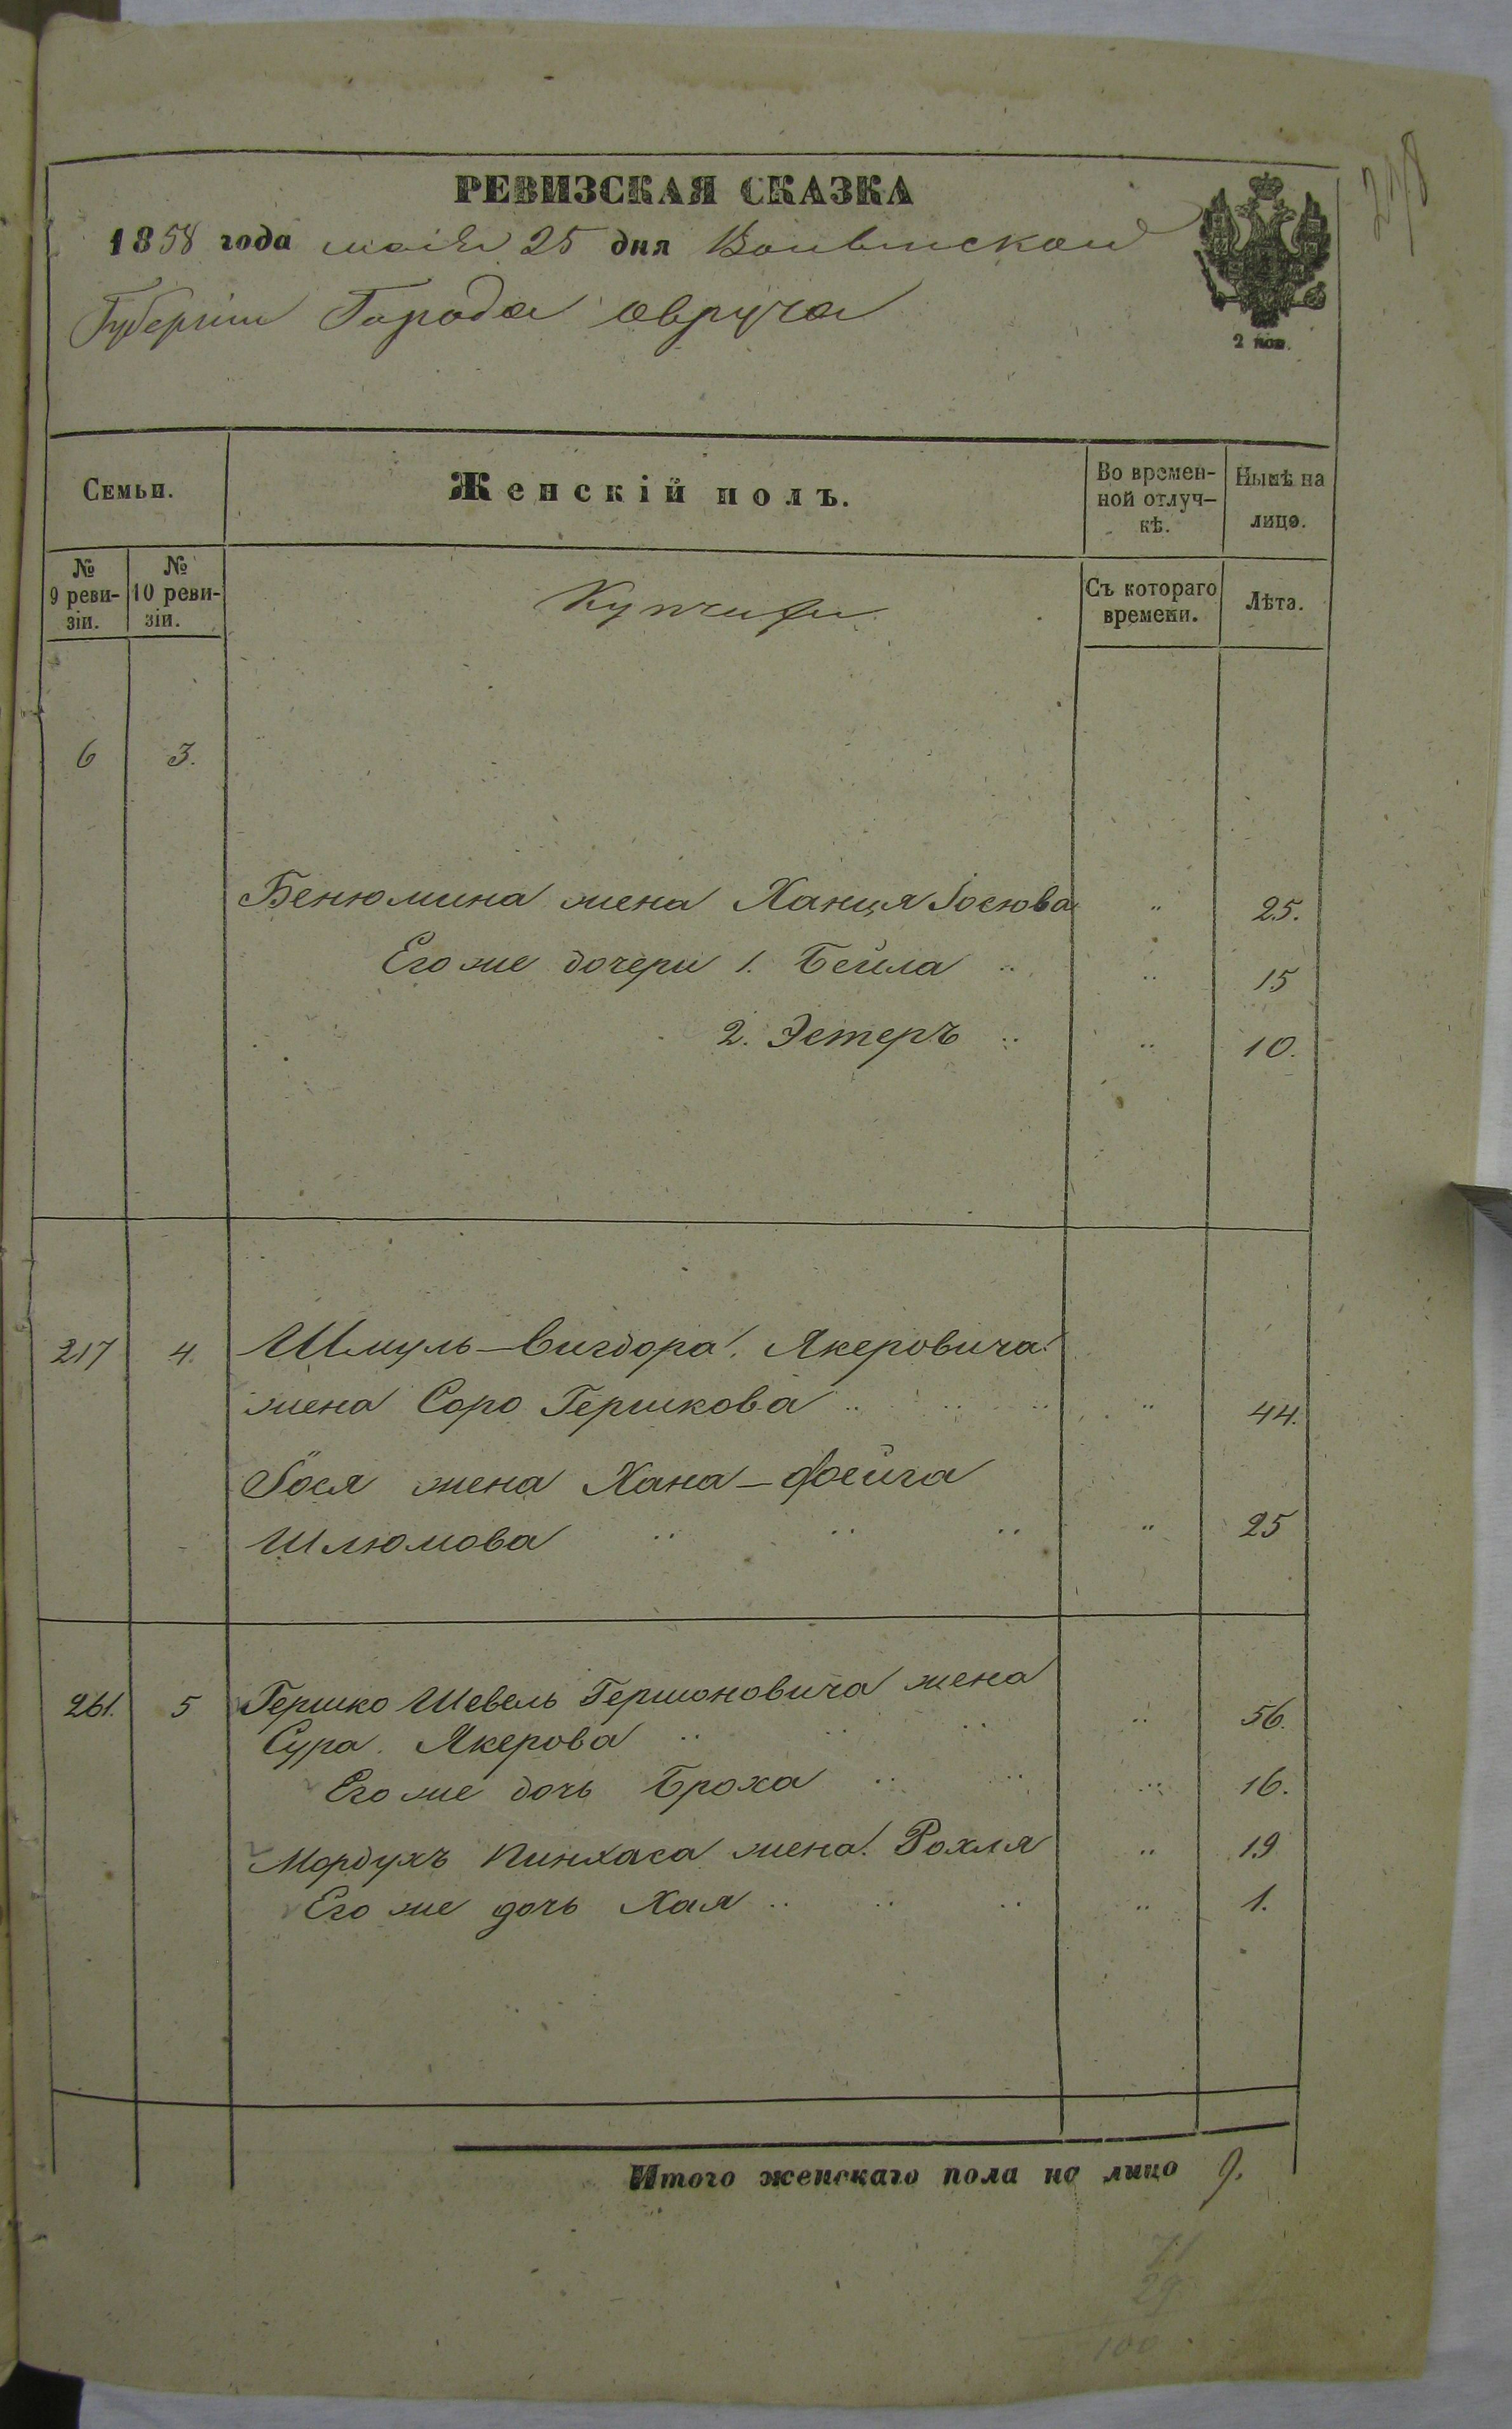 248
РЕВИЗСКАЯ СКАЗКА
1858 года маiя 25 дня Волынской
Губернiи Города Овруча
2 коп.
Семьи.
Женскiй полъ.
Во времен-
ной отлуч-
кѣ.
Нынѣ на
лицо.
№
9 реви-
зiи.
№
10 реви-
зiи.
Купчихи
Съ котораго
времени.
Лѣта.
6 3.
Бенюмина жена Ханця Іосюва " 25.
Его же дочери 1. Бейла " " 15
2. Эстеръ " " 10.
217 4. Шмуль-Вигдора Якеровича
жена Соро Гершкова " " " " 44.
Іося жена Хана-Фейга
Шлюмова " " " " 25
261. 5 Гершко Шевель Гершоновича жена
Сура Якерова " " " " 56.
Его же дочь Броха " " " 16.
Мордухъ Пинхаса жена Рохля " 19
Его же дочь Хая " " " " 1.
Итого женскаго пола на лицо 9.
71
29
100